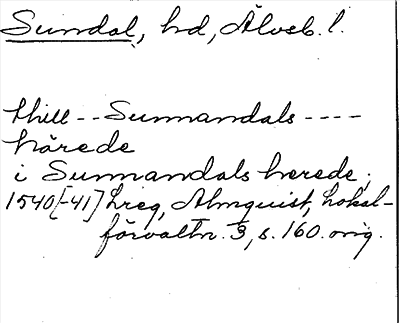 Sundal, hd, Älvsb. l.
thill -- Sunnandals ----
härede
i Sunnandals herede;
1540[-41] hreg, Almquist, Lokal-
förvaltn. 3, s. 160. orig.